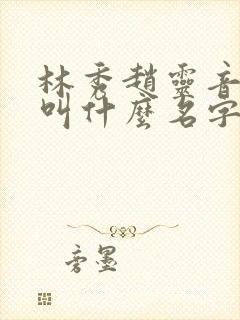 林秀趙靈音
叫什麼名字
旁墨